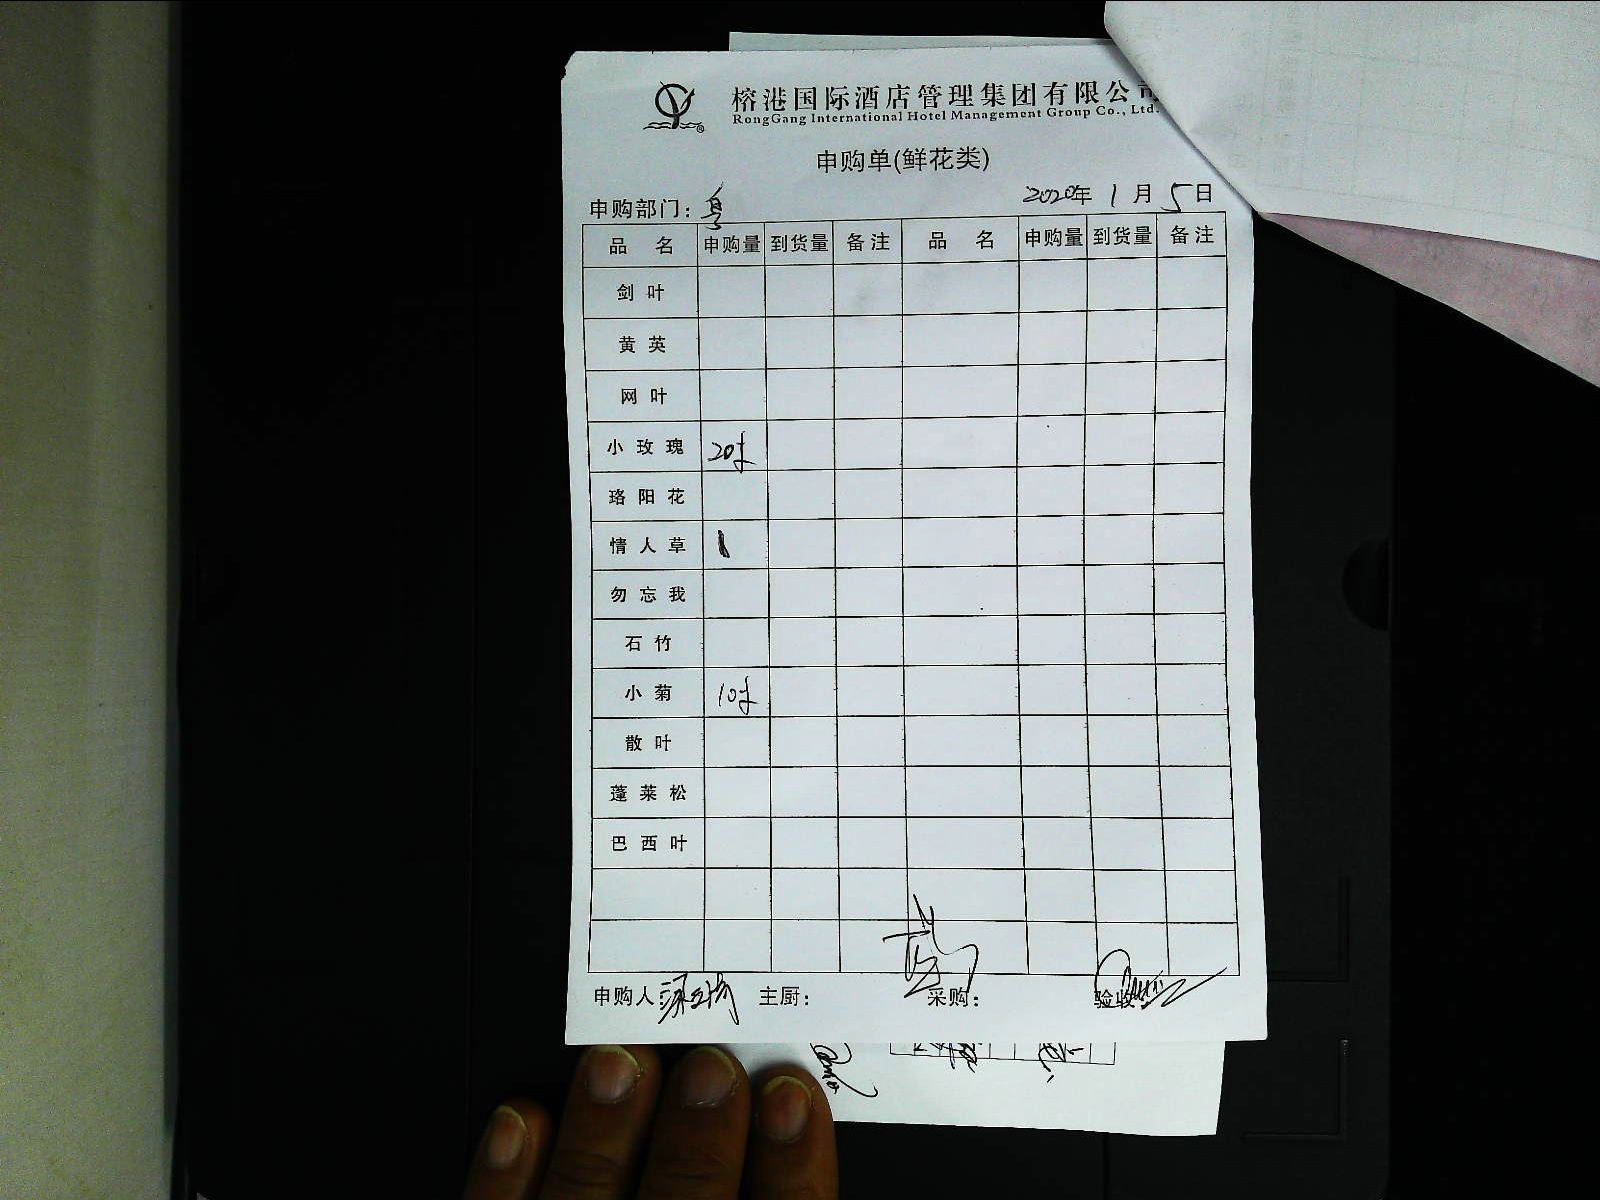 榕港国际酒店管理集团有限公司
RongGang International Hotel Management Group Co., Ltd.
申购单(鲜花类)
申购部门: 2020年 1 月 5 日
品 名 申购量 到货量 备注 品 名 申购量 到货量 备注
剑叶
黄英
网叶
小玫瑰 20
珞阳花
情人草
勿忘我
石竹
小菊 10
散叶
蓬莱松
巴西叶
申购人: 主厨: 采购: 验收